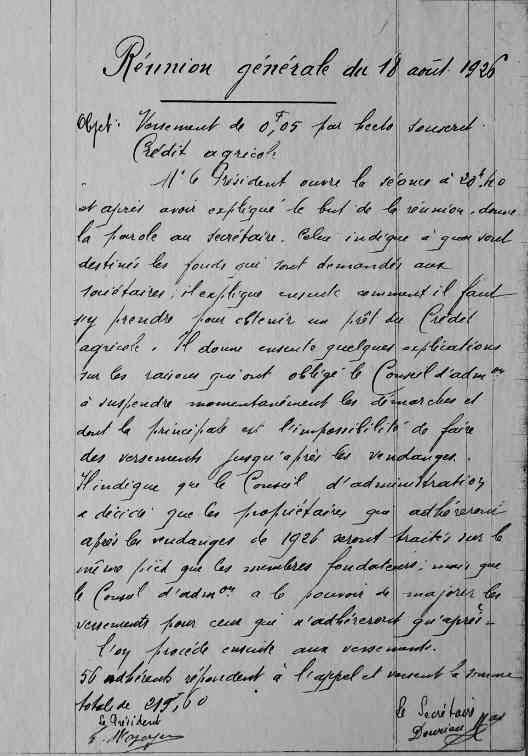 Réunion générale du 18 août 1926
Objet: Versement de 0F,05 par hecto souscrit.
Crédit agricole
Mr le Président ouvre la séance à 20h,40
et après avoir expliqué le but de la réunion, donne
la parole au secrétaire. Celui indique à quoi sont
destinés les fonds qui sont demandés aux
sociétaires; il explique ensuite comment il faut
s'y prendre pour obtenir un prêt du Crédit
agricole. Il donne ensuite quelques explications
sur les raisons qui ont obligé le Conseil d'admon
à suspendre momentanément les démarches et
dont la principale est l'impossibilité de faire
des versements jusqu'après les vendanges.
Il indique que le Conseil d'administration
a décidé que les propriétaires qui adhéreront
après les vendanges de 1926 seront traités sur le
même pied que les membres fondateurs; mais que
le Conseil d'admon a le pouvoir de majorer les
versements pour ceux qui n'adhéreront qu'après.
L'on procède ensuite aux versements.
56 adhérents répondent à l'appel et versent la somme
totale de 219F,60
Le Président
le Secrétaire